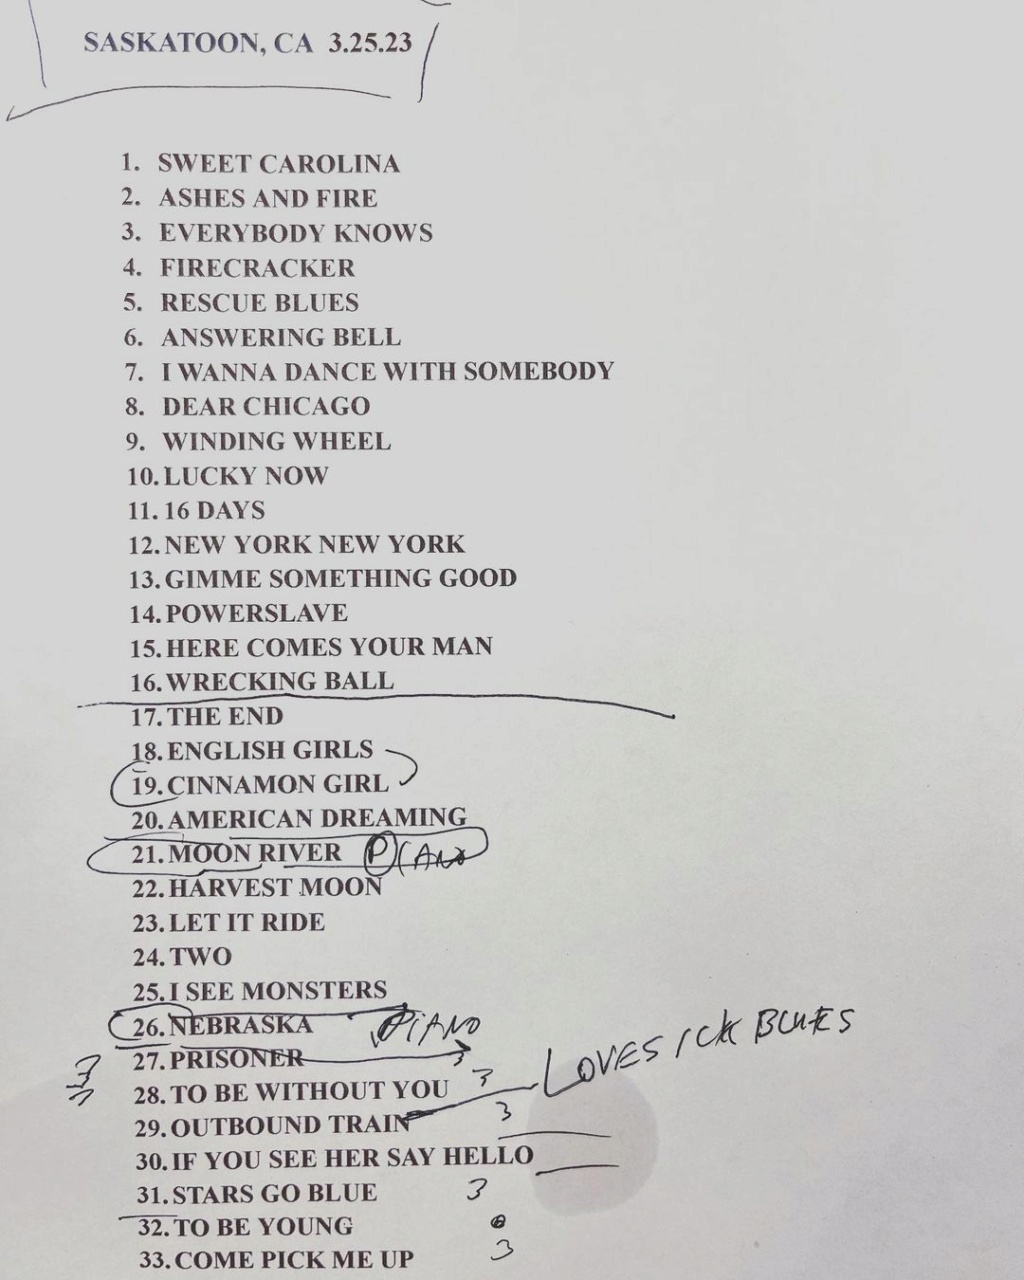 SASKATOON, CA 3.25.23
1. SWEET CAROLINA
2. ASHES AND FIRE
3. EVERYBODY KNOWS
4. FIRECRACKER
5. RESCUE BLUES
6. ANSWERING BELL
7. I WANNA DANCE WITH SOMEBODY
8. DEAR CHICAGO
9. WINDING WHEEL
10. LUCKY NOW
11. 16 DAYS
12. NEW YORK NEW YORK
13. GIMME SOMETHING GOOD
14. POWERSLAVE
15. HERE COMES YOUR MAN
16. WRECKING BALL
17. THE END
18. ENGLISH GIRLS
19. CINNAMON GIRL
20. AMERICAN DREAMING
21. MOON RIVER PIANO
22. HARVEST MOON
23. LET IT RIDE
24. TWO
25. I SEE MONSTERS
26. NEBRASKA PIANO
27. PRISONER 3
3 28. TO BE WITHOUT YOU 3 LOVESICK BLUES
29. OUTBOUND TRAIN 3
30. IF YOU SEE HER SAY HELLO
31. STARS GO BLUE 3
32. TO BE YOUNG
33. COME PICK ME UP 3